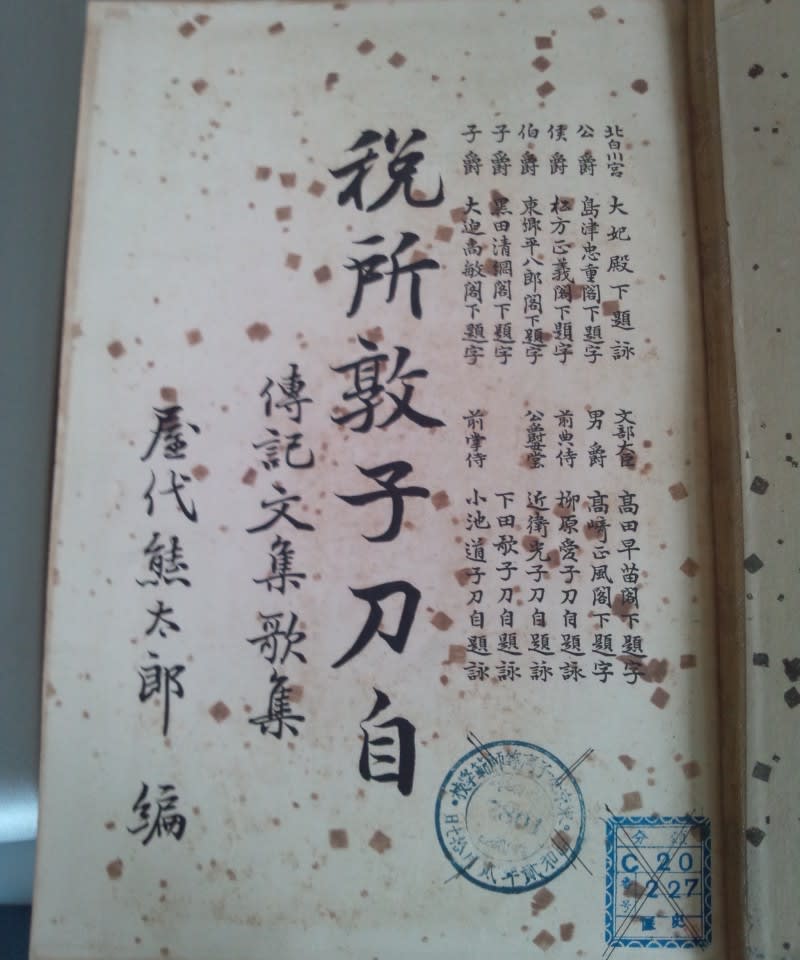 北白川宮 大妃殿下題詠
公爵 島津忠重閣下題字
侯爵 松方正義閣下題字
伯爵 東郷平八郎閣下題字
子爵 黒田清綱閣下題字
子爵 大迫尚敏閣下題字
文部大臣 高田早苗閣下題字
男爵 高崎正風閣下題字
前典侍 柳原愛子刀自題詠
公爵母堂 近衛光子刀自題詠
下田歌子刀自題詠
前掌侍 小池道子刀自題詠
税所敦子刀自
傳記文集歌集
屋代熊太郎 編
C 20
227